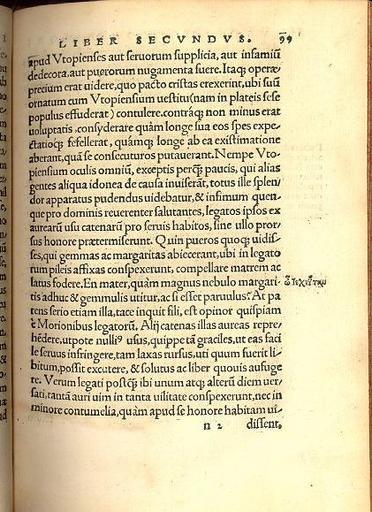 LIBER SECVNDVS. 99
apud Vtopienses aut seruorum supplicia, aut infamiũ
dedecora, aut puerorum nugamenta fuere. Itaq; operæ
precium erat uidere, quo pacto cristas erexerint, ubi suũ
ornatum cum Vtopiensium uestitu (nam in plateis sese
populus effuderat) contulere. contráq; non minus erat
uoluptatis .consyderare quàm longe sua eos spes expe-
ctatioq; fefellerat, quámq; longe ab ea existimatione
aberant, quã se consecuturos putauerant. Nempe Vto-
piensium oculis omniũ, exceptis perq̃ paucis, qui alias
gentes aliqua idonea de causa inuiserãt, totus ille splen/
dor apparatus pudendus uidebatur, & infimum quen-
que pro dominis reuerenter salutantes, legatos ipsos ex
aurearũ usu catenarũ pro seruis habitos, sine ullo pror/
sus honore prætermiserunt. Quin pueros quoq; uidis/
ses, qui gemmas ac margaritas abiecerant, ubi in legato
rum pileis affixas conspexerunt, compellare matrem ac
latus fodere. En mater, quàm magnus nebulo margari-
tis adhuc & gemmulis utitur, ac si esset paruulus. At pa
rens serio etiam illa, tace inquit fili, est opinor quispiam
è Morionibus legatorũ. Alij catenas illas aureas repre/
hẽdere, utpote nulliꝰ usus, quippe tã graciles, ut eas faci
le seruus infringere, tam laxas rursus, uti quum fuerit li/
bitum, possit excutere, & solutus ac liber quouis aufuge
re. Verum legati postq̃ ibi unum atq; alterũ diem uer/
sati, tantã auri uim in tanta uilitate conspexerunt, nec in
minore contumelia, quàm apud se honore habitam ui-
n 2 dissent,